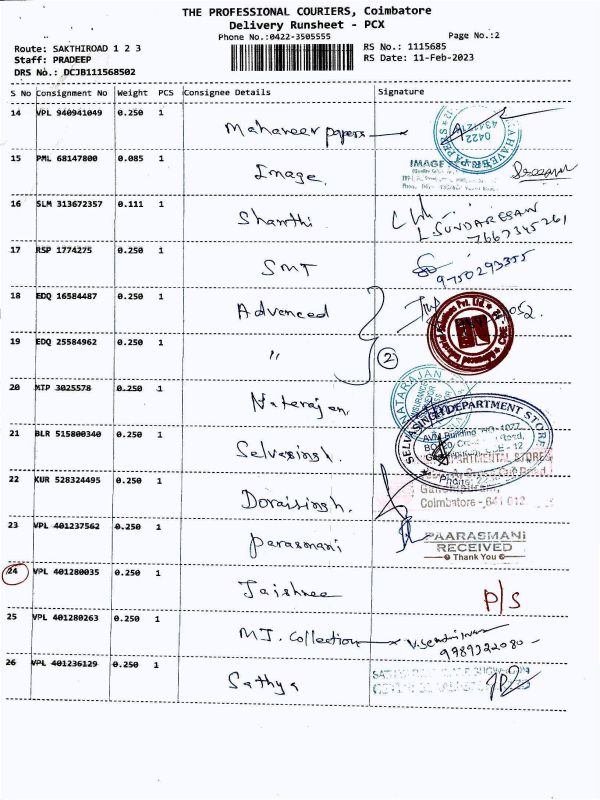 THE PROFESSIONAL COURIERS, Coimbatore
Delivery Runsheet - PCX
Phone No.:0422-3505555
Page No.:2
Route: SAKTHIROAD 1 2 3
RS No.: 1115685
Staff: PRADEEP
RS Date: 11-Feb-2023
DRS No.: DCJB111568502
S No Consignment No Weight PCS Consignee Details Signature
14 VPL 940941049 0.250 1 Mahaveer papers
0422
15 PML 68147800 0.085 1 Image
IMAGE
16 SLM 313672357 0.111 1 Shanthi
L.SUNDARESAN
7667345261
17 RSP 1774275 0.250 1 SMT
9750293355
18 EDQ 16584487 0.250 1 Advanced
19 EDQ 25584962 0.250 1 "
2
20 MTP 3025578 0.250 1 Natarajan
NATARAJAN
21 BLR 515800340 0.250 1 Selvasingh
SELVASINGH DEPARTMENT STORE
22 KUR 528324495 0.250 1 Doraisingh.
DEPARTMENTAL STORES
Coimbatore - 641 012
23 VPL 401237562 0.250 1 Parasmani
PAARASMANI
RECEIVED
Thank You
24 VPL 401280035 0.250 1 Jaishree P/S
25 VPL 401280263 0.250 1 M.J. Collection
9989322080
26 VPL 401236129 0.250 1 Sathya